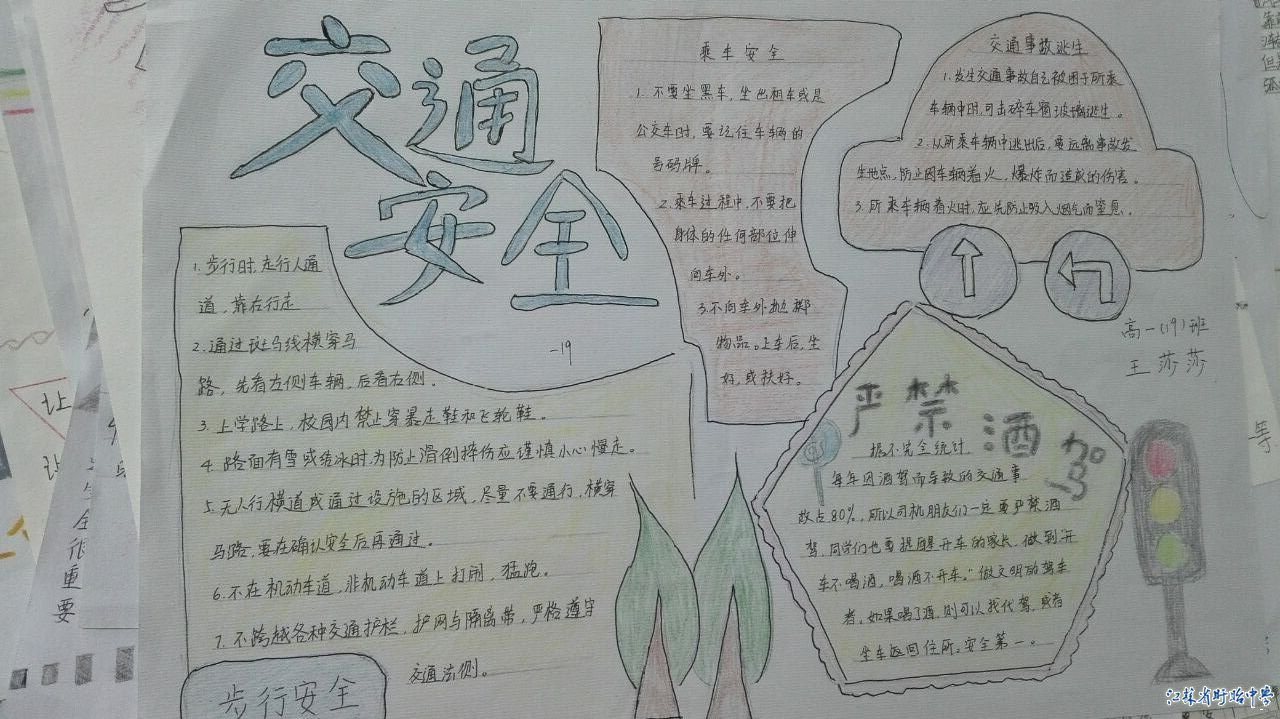 交通
安全
-19
1. 步行时,走行人通
道,靠右行走
2. 通过斑马线横穿马
路,先看左侧车辆,后看右侧.
3. 上学路上,校园内禁止穿暴走鞋和飞轮鞋。
4. 路面有雪或结冰时,为防止滑倒摔伤应谨慎小心慢走。
5. 无人行横道或通过设施的区域,尽量不要通行,横穿
马路,要在确认安全后再通过。
6. 不在机动车道,非机动车道上打闹,猛跑。
7. 不跨越各种交通护栏,护网与隔离带,严格遵守
交通法则。
步行安全
乘车安全
1. 不要坐黑车,坐出租车或是
公交车时,要记住车辆的
号码牌。
2. 乘车过程中,不要把
身体的任何部位伸
向车外。
3. 不向车外抛掷
物品。上车后,坐
好,或扶好。
交通事故逃生
1. 发生交通事故自己被困于所乘
车辆中时,可击碎车窗玻璃逃生。
2. 从所乘车辆中逃出后,要远离事故发
生地点,防止因车辆着火,爆炸而造成的伤害。
3. 所乘车辆着火时,应先防止吸入烟气而窒息.
高一(19)班
王莎莎
严禁酒驾
据不完全统计
每年因酒驾而导致的交通事
故占80%,所以司机朋友们一定要严禁酒
驾,同学们也要提醒开车的家长,做到"开
车不喝酒,喝酒不开车。"做文明的驾车
者,如果喝了酒,则可以找代驾,或者
坐车返回住所。安全第一。
让
全很重要
等
江苏省盱眙中学